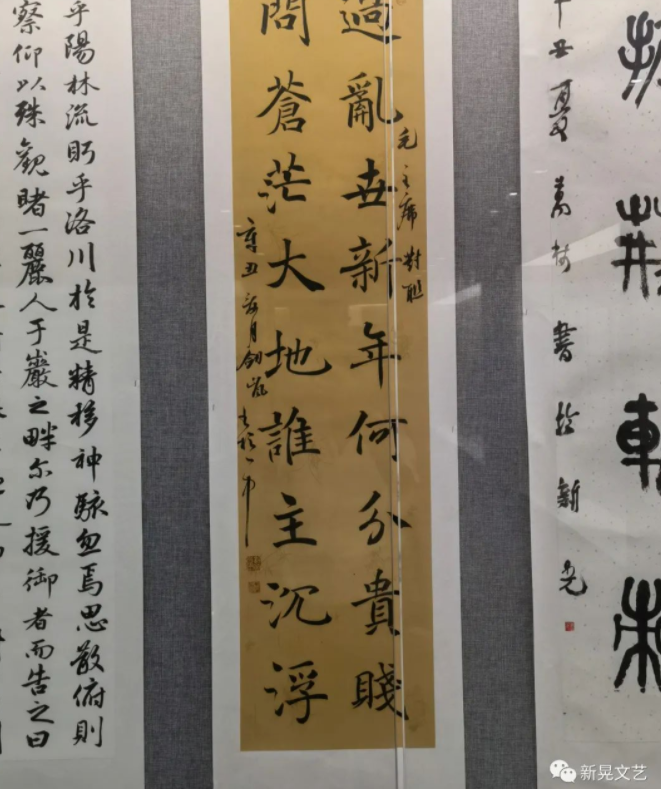 丑夏
書於新晃
過亂世新年何分貴賤
毛主席對聯
問蒼茫大地誰主沉浮
辛丑
乎陽林流眄乎洛川於是精移神駭忽焉思散俯則
察仰以殊觀睹一麗人于巖之畔尔乃援御者而告之曰
新晃文艺